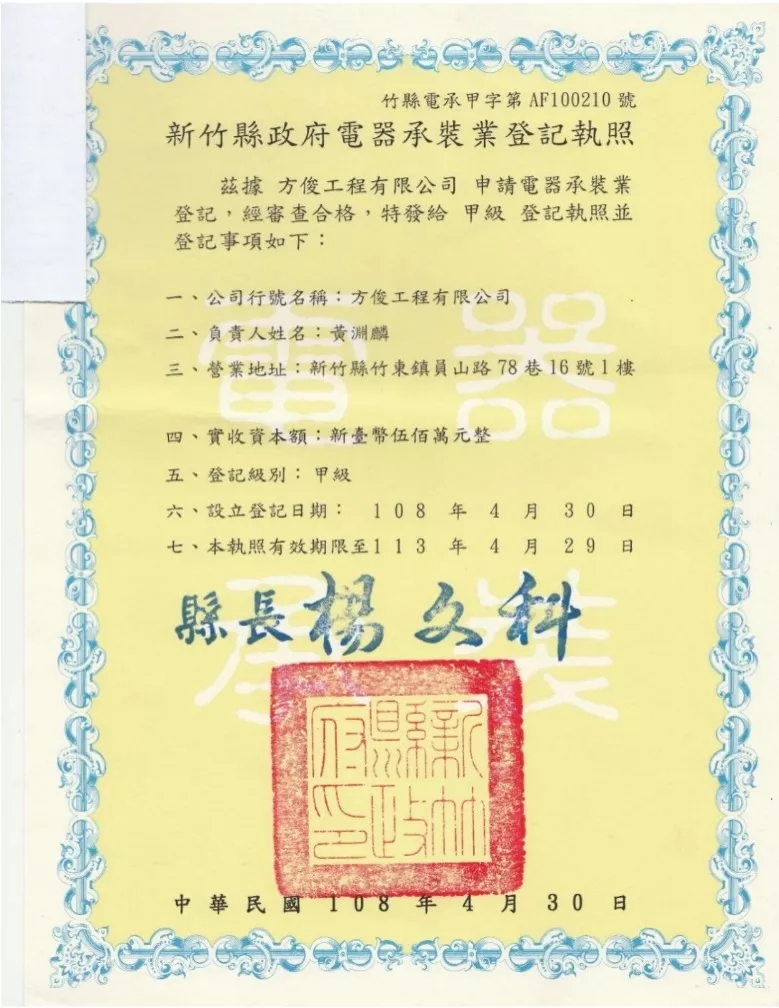 竹縣電承甲字第 AF100210 號
新竹縣政府電器承裝業登記執照
茲據 方俊工程有限公司 申請電器承裝業
登記，經審查合格，特發給 甲級 登記執照並
登記事項如下：
一、公司行號名稱：方俊工程有限公司
二、負責人姓名：黃淵麟
三、營業地址：新竹縣竹東鎮員山路 78 巷 16 號 1 樓
四、實收資本額：新臺幣伍佰萬元整
五、登記級別：甲級
六、設立登記日期： 108 年 4 月 30 日
七、本執照有效期限至113 年 4 月 29 日
電器
承裝
縣長楊文科
新竹縣政府印
中華民國 108 年 4 月 30 日